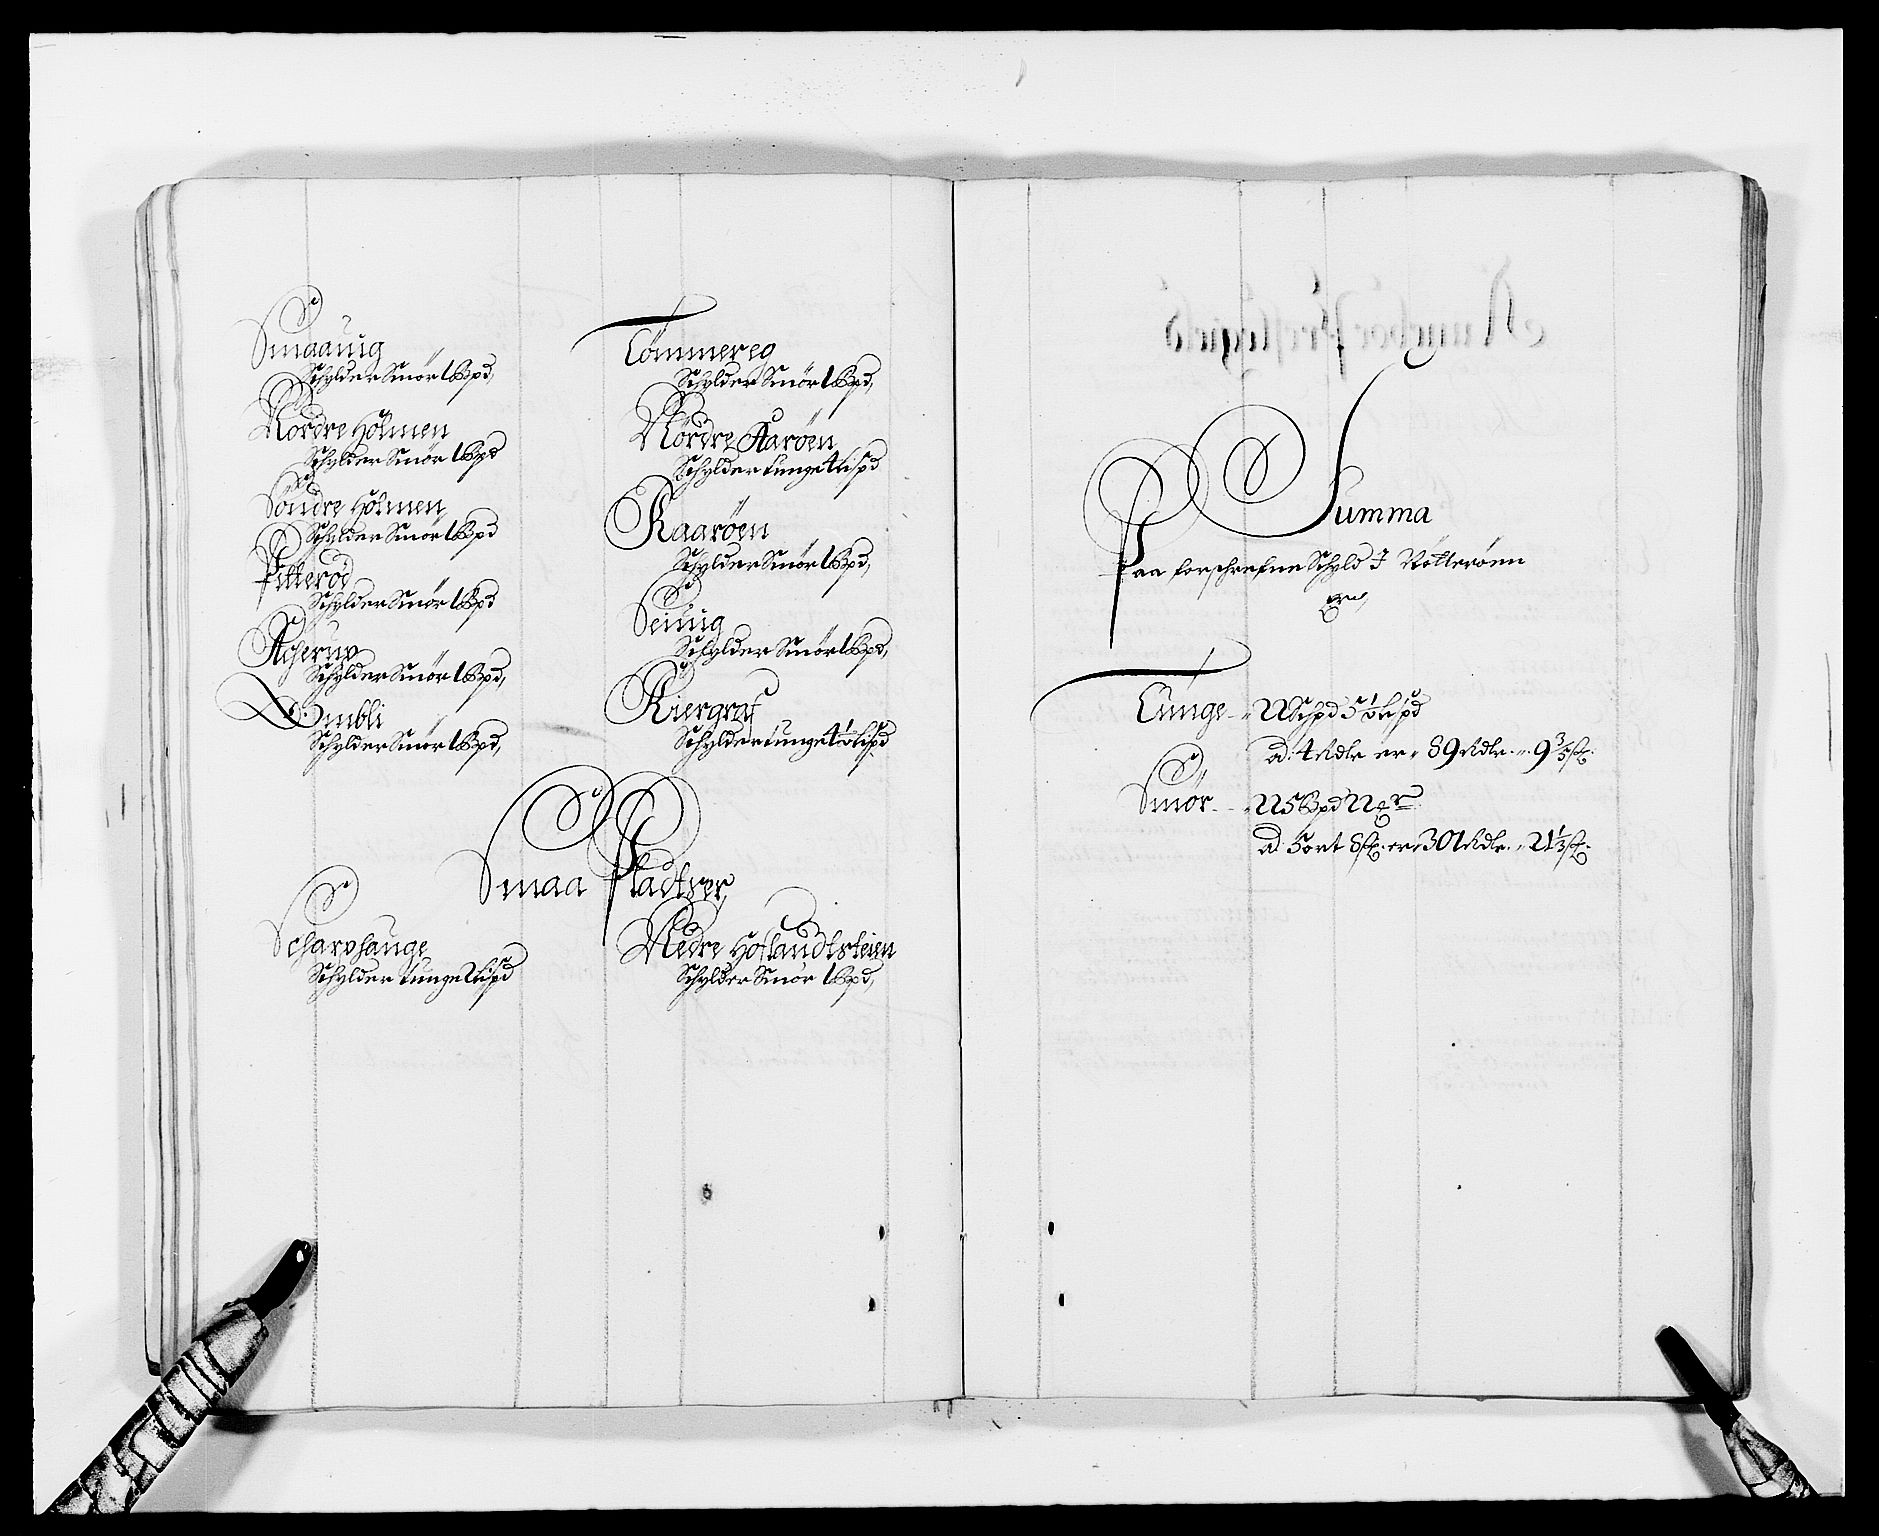 Smaauig
Schylder Smör 1 Bpd,
Nordre Holmen
Schylder Smör 1 Bpd
Söndre Holmen
Schylder Smör 1 Bpd
Fitterød
Schylder Smör 1 Bpd
Agerup
Schylder Smör 1 Bpd,
Ombli
Schylder Smör 1 Bpd,
Tömmereg
Schylder Smör 1 Bpd,
Nördre Aaröen
Schylder tunge 4 Lispd
Kaaröen
Schylder Smör 1 Bpd,
Seiuig
Schylder Smör 1 Bpd,
Kiergraf
Schylder tunge Lispd
Smaa Pladtser
Scharphauge
Schylder tunge Lispd
Nedre Hoflandtsteien
Schylder Smör 1 Bpd,
Summa
Paa forschrefne Schyld J Nötteröen
Er,
Tunge 22 Schpd 5 Lispd
ad 4 Rdlr er 89 Rdlr 9 3/5 sk
Smör 225 Bpd
ad 5 ort 8 sk er 301 Rdlr 21 1/3 sk